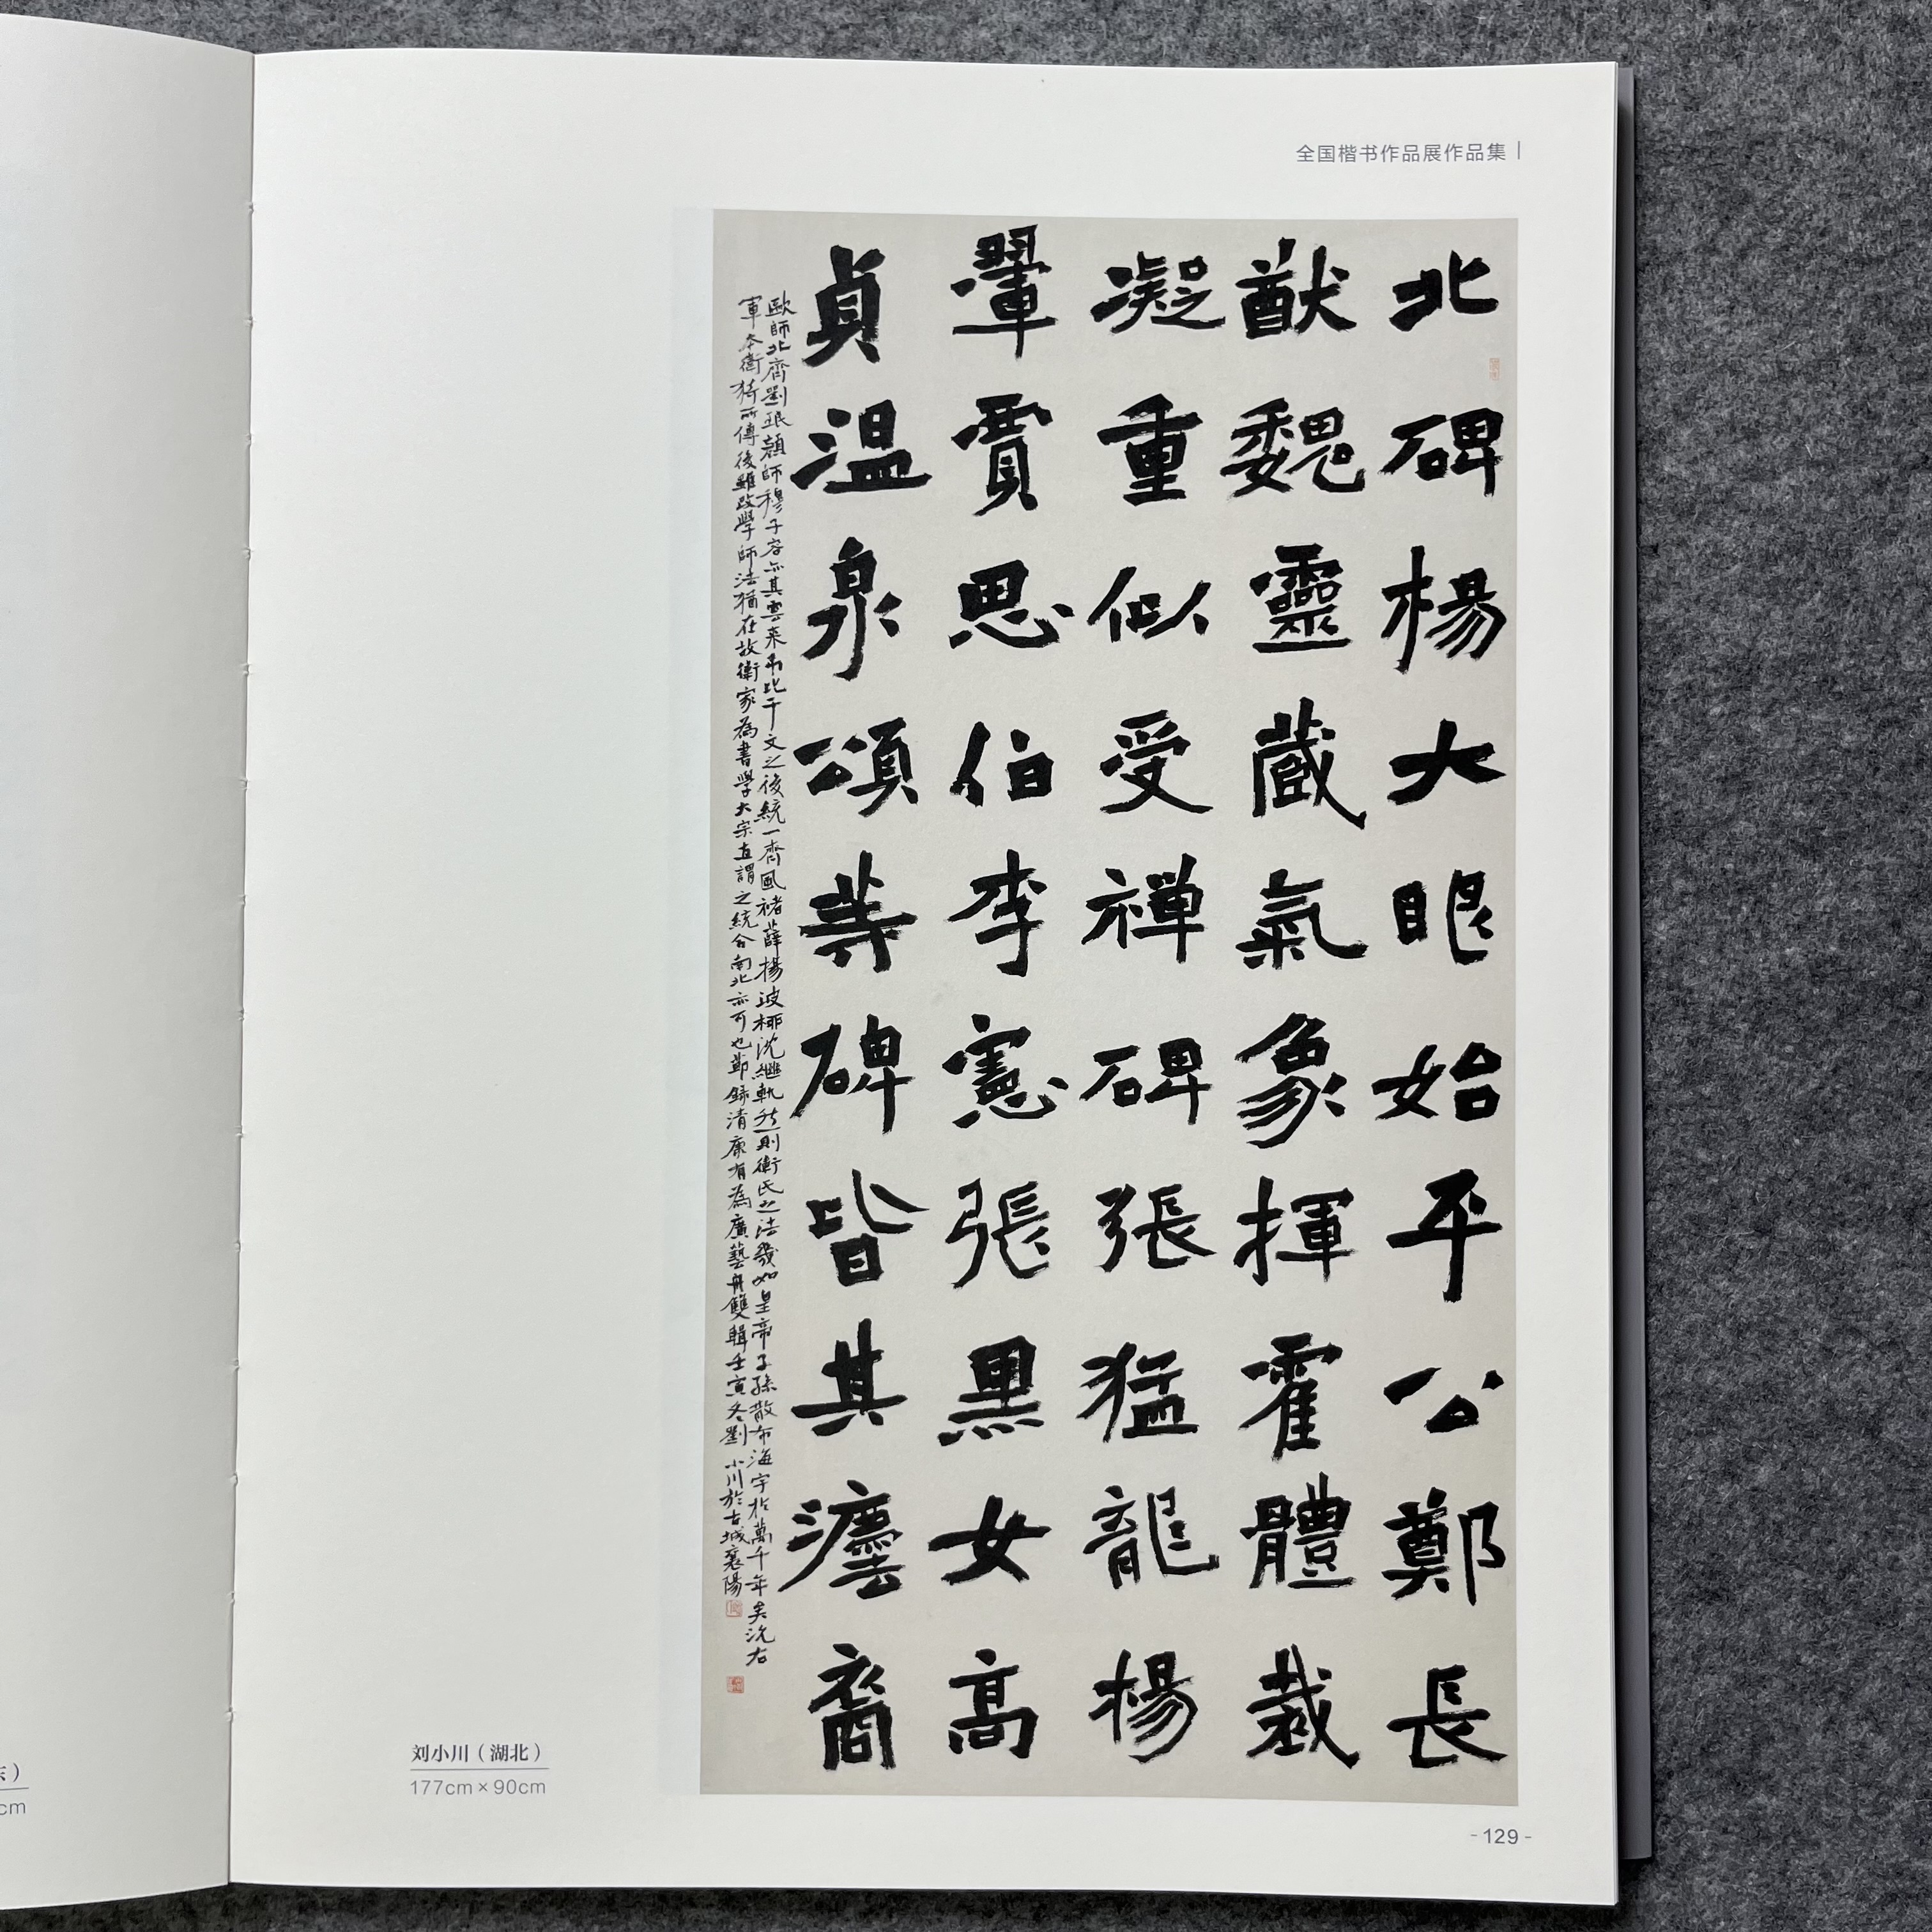 全国楷书作品展作品集
北碑楊大眼始平公鄭長
猷魏靈蔵氣象揮霍體裁
凝重似受禅碑張猛龍楊
翬賈思伯李憲張黑女高
貞温泉頌等碑皆其灋裔
歐師北齊劉珉顔師穆子容亦其雲来吊比干文之後統一齊風褚薛揚波栁沈繼軌然則衛氏之法幾如皇帝子孫散布海宇於萬千年矣況右
軍本衛猗所傳後雖改學師法猶在故衛家為書學大宗直謂之統合南北亦可也節録清康有為廣藝舟雙輯壬寅冬劉小川於古城襄陽
刘小川（湖北）
177cm×90cm
）
cm
-129-